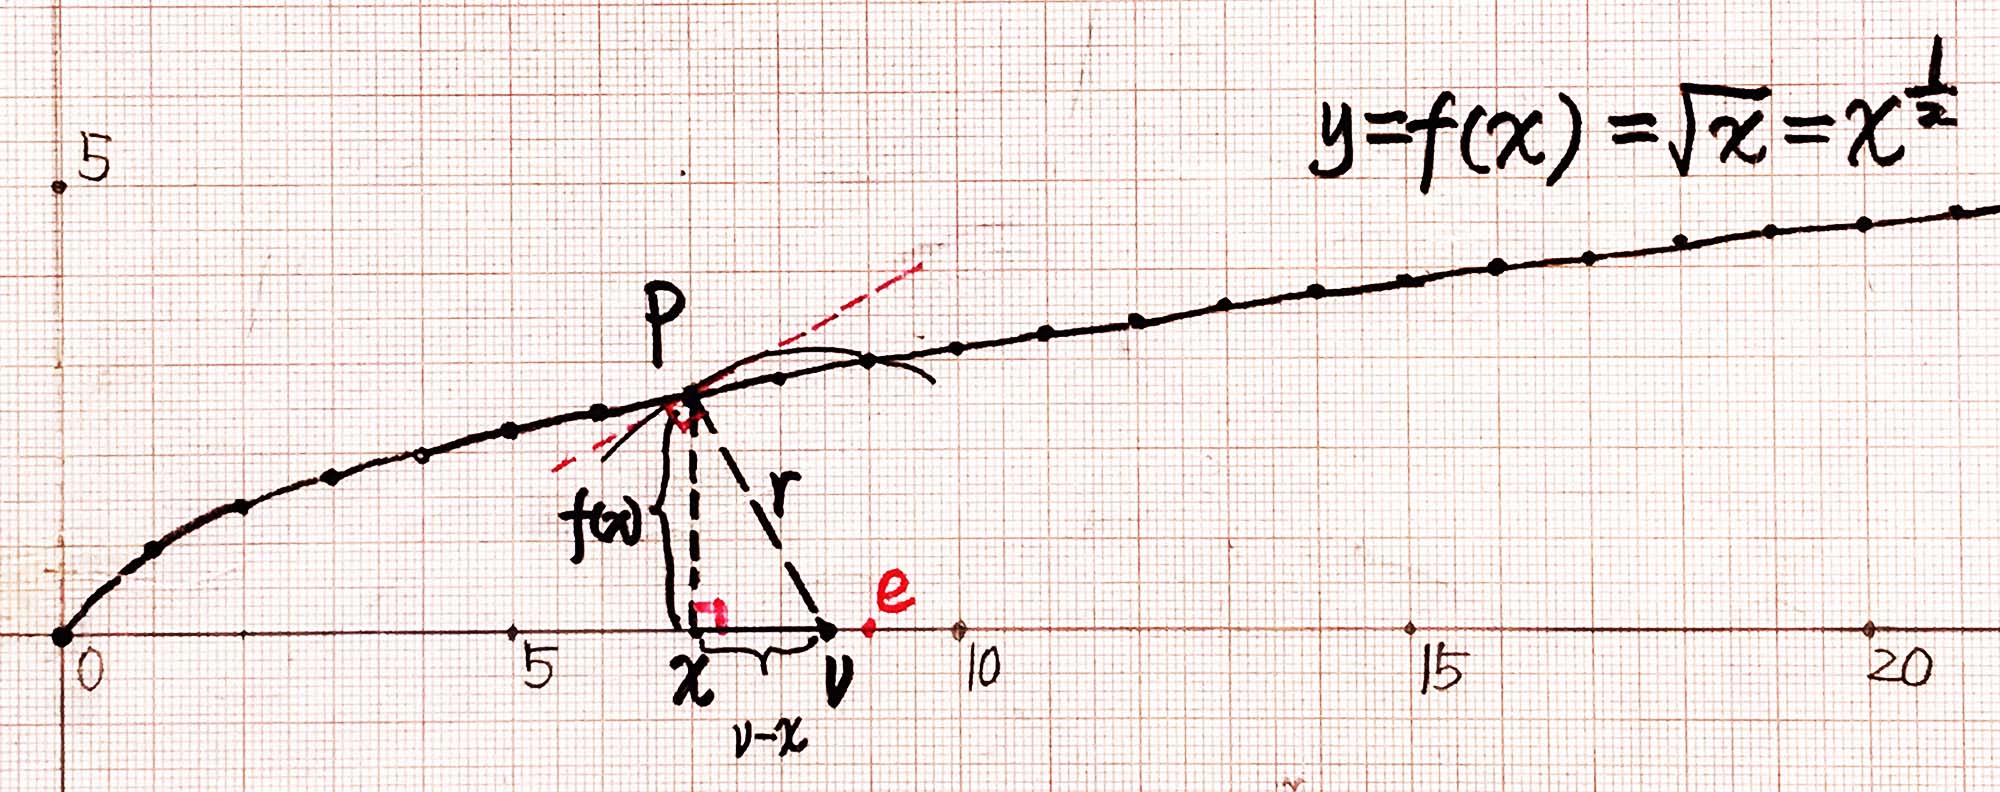 y=f(x)=√x=x^{1/2}
5
P
r
f(x)
e
0
5
x
ν
10
15
20
ν-x